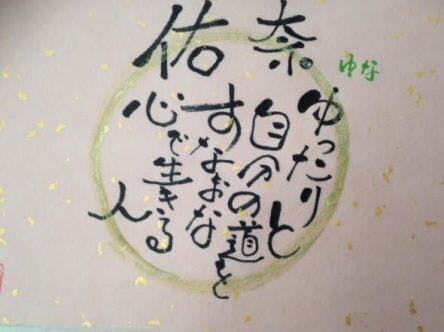 佑奈
ゆな
ゆったりと
自分の道を
すなおな
心で生きる
人